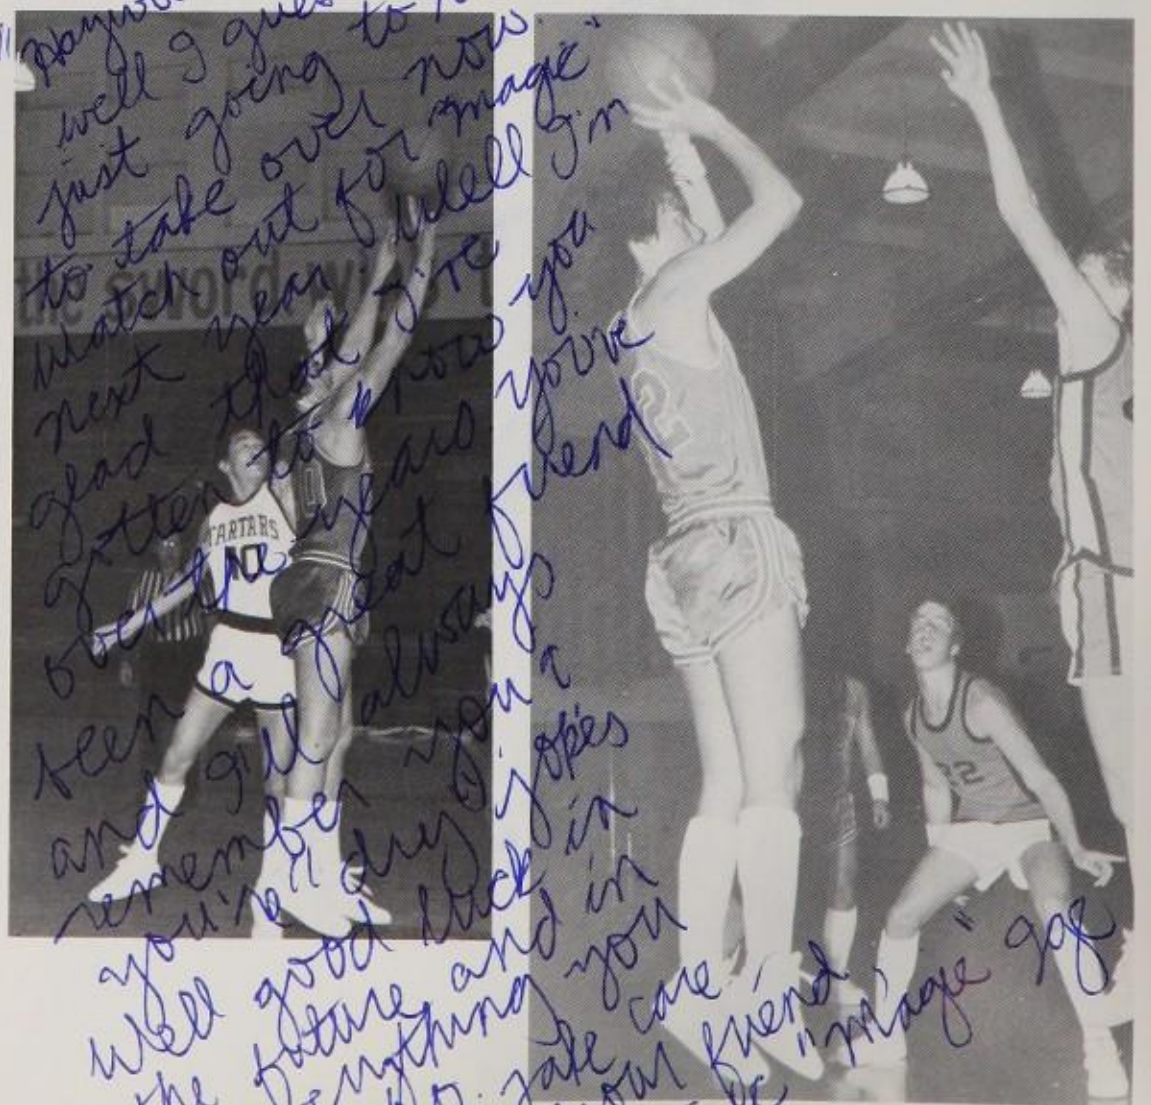 "Haywo
well I gues
just going to
to take over now.
watch out for "magic"
next year. Well I'm
glad that I've
gotten to know you
over the years you've
been a great friend
and I'll always
remember you &
you're "dry" jokes
Well good luck in
the future, and in
everything you
do. Take care
your friend
"magic"
the sword
TARTARS
10
21
22